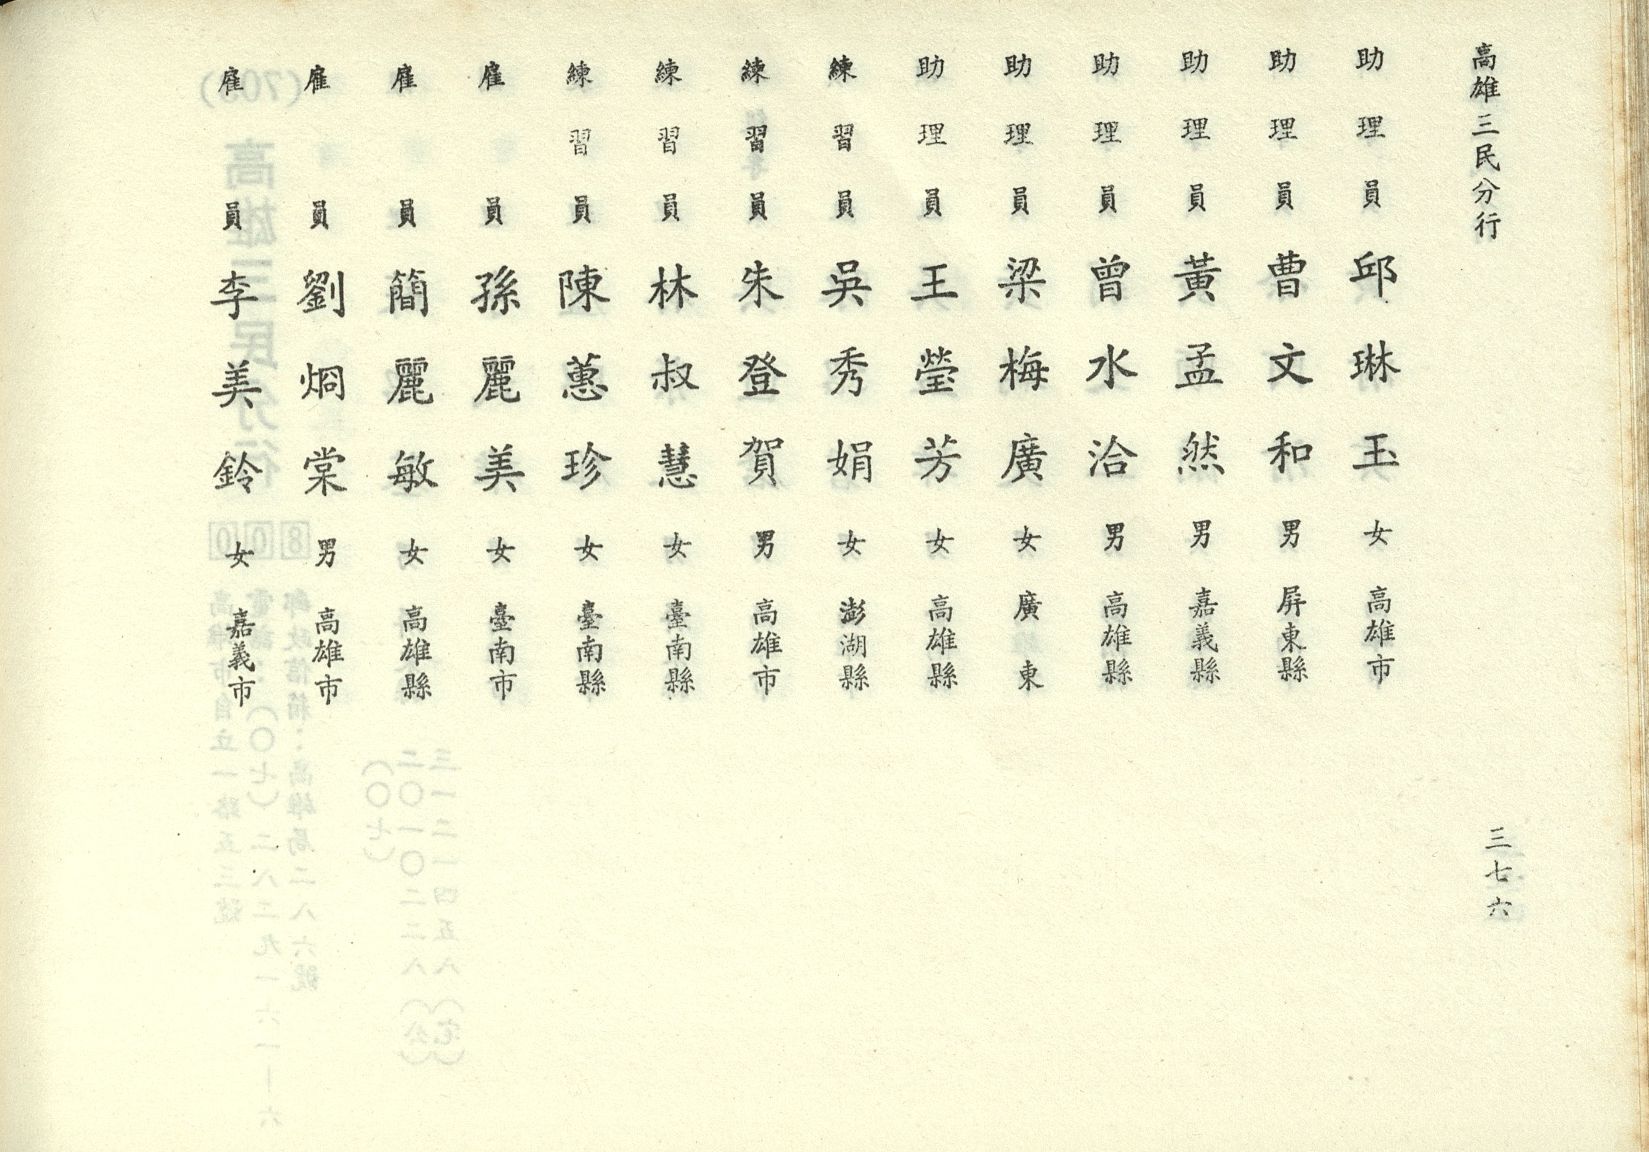 高雄三民分行
助理員 邱琳玉 女 高雄市
助理員 曹文和 男 屏東縣
助理員 黃孟然 男 嘉義縣
助理員 曾水洽 男 高雄縣
助理員 梁梅廣 女 廣東
助理員 王瑩芳 女 高雄縣
練習員 吳秀娟 女 澎湖縣
練習員 朱登賀 男 高雄市
練習員 林叔慧 女 臺南縣
練習員 陳蕙珍 女 臺南縣
雇員 孫麗美 女 臺南市
雇員 簡麗敏 女 高雄縣
雇員 劉烱棠 男 高雄市
雇員 李美鈴 女 嘉義市
三七六